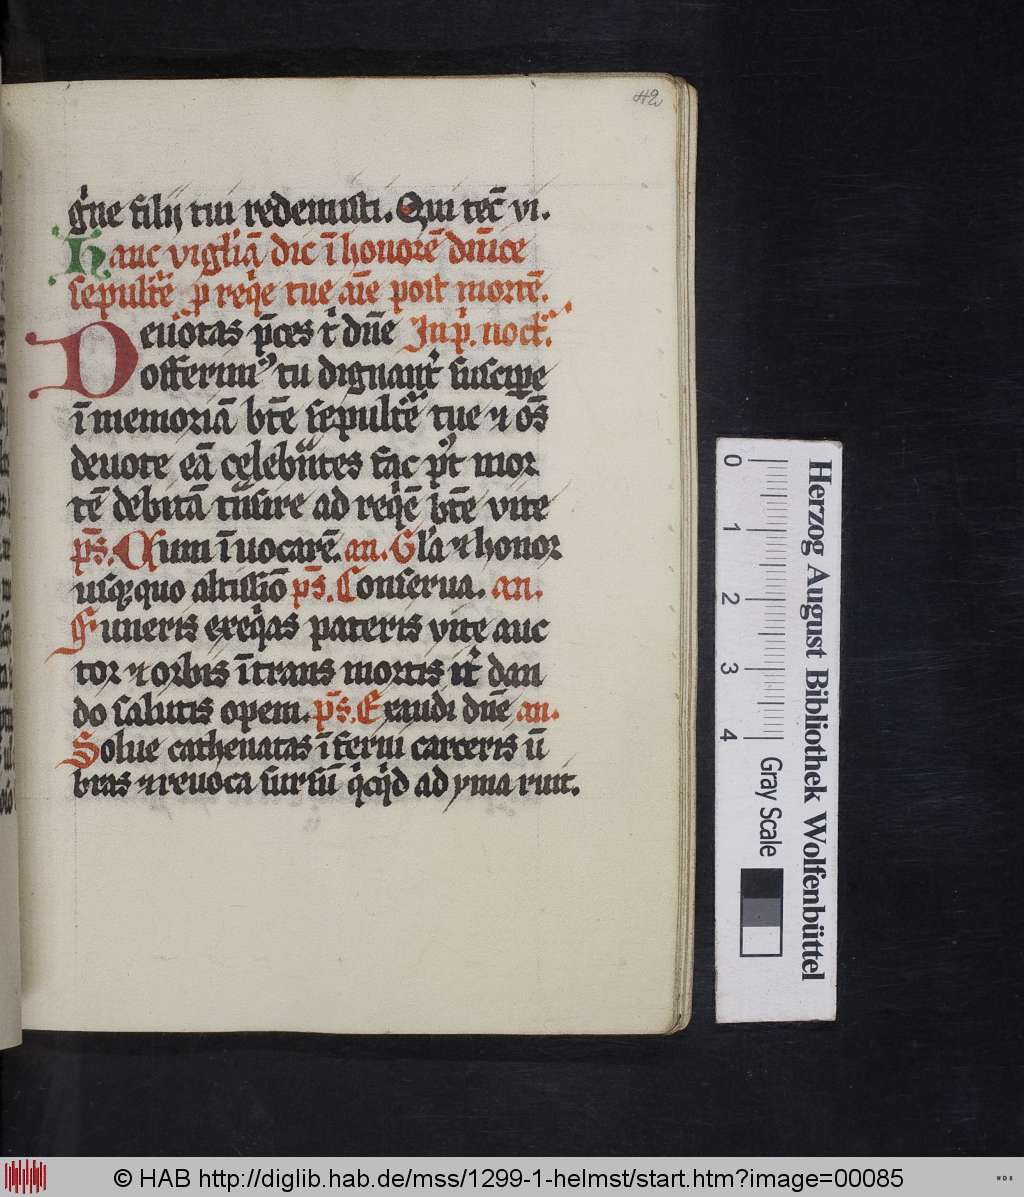 42
gͥne filij tui redemisti. Qui tec̄ vi.
Hanc vigl̓iā dic ī honorē dn̄ice
sepult̄e p̱ req̓e tue aīe post mortē.
Deuotas p̄ces t̓ dn̄e Jn p̓. noct̓.
offerimꝰ tu dignant̓ suscipe
ī memoriā bt̄e sepult̄e tue ⁊ os̄
deuote eā celebn̄tes fac pꝰt mor
tē debitā tn̄sire ad req̓ē bt̄e vite
p̄s. Cum īuocarē. an. Gl̓a ⁊ honor
usq̨quo altissīo p̄s. Conserua. an.
Funeris exeq̓as pateris vite auc
tor ⁊ orbis ītrans mortis it̓ dan
do salutis opem. p̄s. Exaudi dn̄e an.
Solue cathenatas īferni carceris ū
bras ⁊ reuoca sursū q̓cq̓d ad yma ruit.
0 1 2 3 4
Gray Scale
Herzog August Bibliothek Wolfenbüttel
© HAB http://diglib.hab.de/mss/1299-1-helmst/start.htm?image=00085